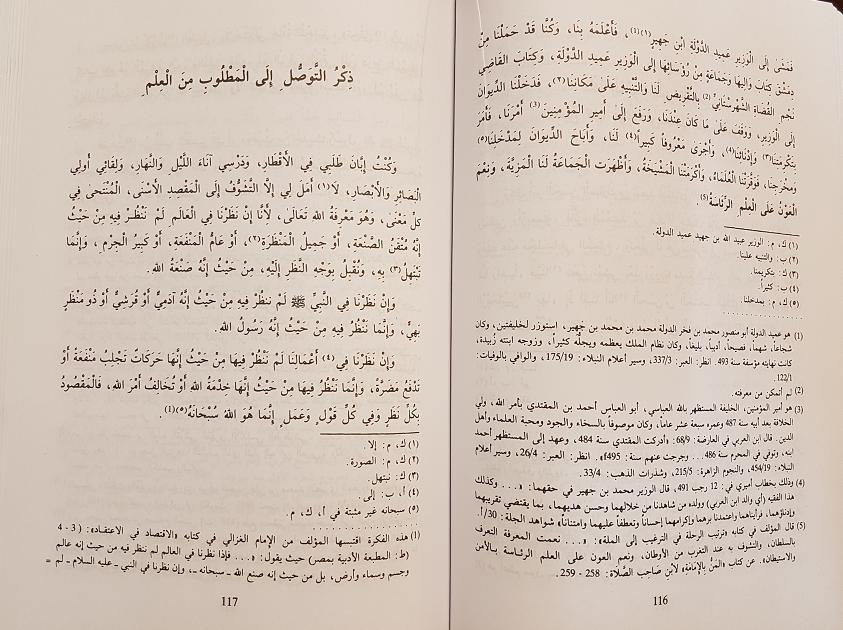 فَمَشَى إِلَى الْوَزِيرِ عَمِيدِ الدَّوْلَةِ ابْنِ جَهِيرٍ(١)(1)، فَأَعْلَمَهُ بِنَا، وَكُنَّا قَدْ حَمَلْنَا مِنْ
دِمَشْقَ كِتَابَ وَالِيهَا وَجَمَاعَةٍ مِنْ رُؤَسَائِهَا إِلَى الْوَزِيرِ عَمِيدِ الدَّوْلَةِ، وَكِتَابَ الْقَاضِي
نَجْمِ الْقُضَاةِ الشَّهْرَسْتَانِيِّ(2) بِالتَّقْرِيضِ لَنَا وَالتَّنْبِيهِ عَلَى مَكَانَتِنَا(٢)، فَدَخَلْنَا الدِّيوَانَ
إِلَى الْوَزِيرِ، وَوَقَفَ عَلَى مَا كَانَ عِنْدَنَا، وَرَفَعَ إِلَى أَمِيرِ الْمُؤْمِنِينَ(3) أَمْرَنَا، فَأَمَرَ
بِتَكْرِمَتِنَا(٣) وَإِدْنَائِنَا(4)، وَأَجْرَى مَعْرُوفاً كَبِيراً(٤) لَنَا، وَأَبَاحَ الدِّيوَانَ لِمَدْخَلِنَا(٥)
وَمَخْرَجِنَا، فَوَقَّرَتْنَا الْعُلَمَاءُ، وَأَكْرَمَتْنَا الْمَشْيَخَةُ، وَأَظْهَرَتْ الْجَمَاعَةُ لَنَا الْمَزِيَّةَ، وَنَعْمَ
الْعَوْنُ عَلَى الْعِلْمِ الرِّئَاسَةُ(5).
(١) ك، م: الوزير عبد الله بن جهيد عميد الدولة.
(٢) ب: والتنبيه علينا.
(٣) ك: بتكريمنا.
(٤) ب: كثيراً.
(٥) ك، م: بمدخلنا.
(1) هو عميد الدولة أبو منصور محمد بن فخر الدولة محمد بن محمد بن جهير، استوزر لخليفتين، وكان
شجاعاً، شهماً، فصيحاً، أديباً، بليغاً، وكان نظام الملك يعظمه ويجلّه كثيراً، وزوجه ابنته زُبيدة،
كانت نهايته مؤسفة سنة 493. انظر: العبر: 337/3، وسير أعلام النبلاء: 175/19، والوافي بالوفيات:
122/1.
(2) لم أتمكن من معرفته.
(3) هو أمير المؤمنين، الخليفة المستظهر بالله العباسي، أبو العباس أحمد بن المقتدي بأمر الله، ولي
الخلافة بعد أبيه سنة 487 وعمره سبعة عشر عاماً، وكان موصوفاً بالسخاء والجود ومحبة العلماء وأهل
الدين. قال ابن العربي في العارضة: 68/9: «أدركت المقتدي سنة 484، وعهد إلى المستظهر أحمد
ابنه، وتوفي في المحرم سنة 486... وخرجت عنهم سنة: 495». انظر: العبر: 26/4، وسير أعلام
النبلاء: 454/19، والنجوم الزاهرة: 215/5، وشذرات الذهب: 33/4.
(4) وذلك بخطاب أميري في: 12 رجب 491، قال الوزير محمد بن جهير في حقهما: «... وكذلك
هذا الفقيه (أي والد ابن العربي) وولده من شاهدنا من خلالهما وحسن هديهما، بما يقتضي تقريبهما
وإدناؤهما، فرأيناهما واعتمدنا برهما وإكرامهما إحساناً وتعطفاً عليهما وامتناناً» شواهد الجلة: 30/أ.
(5) قال المؤلف في كتابه «ترتيب الرحلة في الترغيب إلى الملة»: «... نعمت المعرفة التعرف
بالسلطان، والتشوف به عند التغرب من الأوطان، ونعم العون على العلم الرئاسة بالأمن
والاستيطان». عن كتاب «المَنّ بالإمامة» لابن صَاحِب الصَّلاة: 258 - 259.
116
ذِكْرُ التَّوَصُّلِ إِلَى الْمَطْلُوبِ مِنَ الْعِلْمِ
وَكُنْتُ إِبَّانَ طَلَبِي فِي الأَقْطَارِ، وَدَرْسِي آنَاءَ اللَّيْلِ وَالنَّهَارِ، وَلِقَائِي أُولِي
الْبَصَائِرِ وَالأَبْصَارِ، لَا(١) أَمَلَ لِي إِلَّا التَّشَوُّفُ إِلَى الْمَقْصِدِ الأَسْنَى، الْمُنْتَحَى فِي
كُلِّ مَعْنَى، وَهُوَ مَعْرِفَةُ الله تَعَالَى، لأَنَّا إِنْ نَظَرْنَا فِي الْعَالَمِ لَمْ نَنْظُرْ فِيهِ مِنْ حَيْثُ
إِنَّهُ مُتْقَنُ الصَّنْعَةِ، أَوْ جَمِيلُ الْمَنْظَرَةِ(٢)، أَوْ عَامُّ الْمَنْفَعَةِ، أَوْ كَبِيرُ الْجِرْمِ، وَإِنَّمَا
نَبْتَهِلُ(٣) بِهِ، وَنُقْبِلُ بِوَجْهِ النَّظَرِ إِلَيْهِ، مِنْ حَيْثُ إِنَّهُ صَنْعَةُ الله.
وَإِنْ نَظَرْنَا فِي النَّبِيِّ ﷺ لَمْ نَنْظُرْ فِيهِ مِنْ حَيْثُ إِنَّهُ آدَمِيٌّ أَوْ قُرَشِيٌّ أَوْ ذُو مَنْظَرٍ
بَهِيٍّ، وَإِنَّمَا نَنْظُرُ فِيهِ مِنْ حَيْثُ إِنَّهُ رَسُولُ الله.
وَإِنْ نَظَرْنَا فِي(٤) أَعْمَالِنَا لَمْ نَنْظُرْ فِيهَا مِنْ حَيْثُ إِنَّهَا حَرَكَاتٌ تَجْلِبُ مَنْفَعَةً أَوْ
تَدْفَعُ مَضَرَّةً، وَإِنَّمَا نَنْظُرُ فِيهَا مِنْ حَيْثُ إِنَّهَا خِدْمَةُ الله أَوْ تُخَالِفُ أَمْرَ الله، فَالْمَقْصُودُ
بِكُلِّ نَظَرٍ وَفِي كُلِّ قَوْلٍ وَعَمَلٍ إِنَّمَا هُوَ اللهُ سُبْحَانَهُ(٥)(1).
(١) ك، م: إلا.
(٢) ك، م: الصورة.
(٣) ك: نبتهل.
(٤) أ، ب: إلى.
(٥) سبحانه غير مثبتة في أ، ك، م.
(1) هذه الفكرة اقتبسها المؤلف من الإمام الغزالي في كتابه «الاقتصاد في الاعتقاد»: (3 - 4
(ط: المطبعة الأدبية بمصر) حيث يقول: «... فإذا نظرنا في العالم لم ننظر فيه من حيث إنه عالم
وجسم وسماء وأرض، بل من حيث إنه صنع الله ـ سبحانه ـ، وإن نظرنا في النبي ـ عليه السلام ـ لم =
117